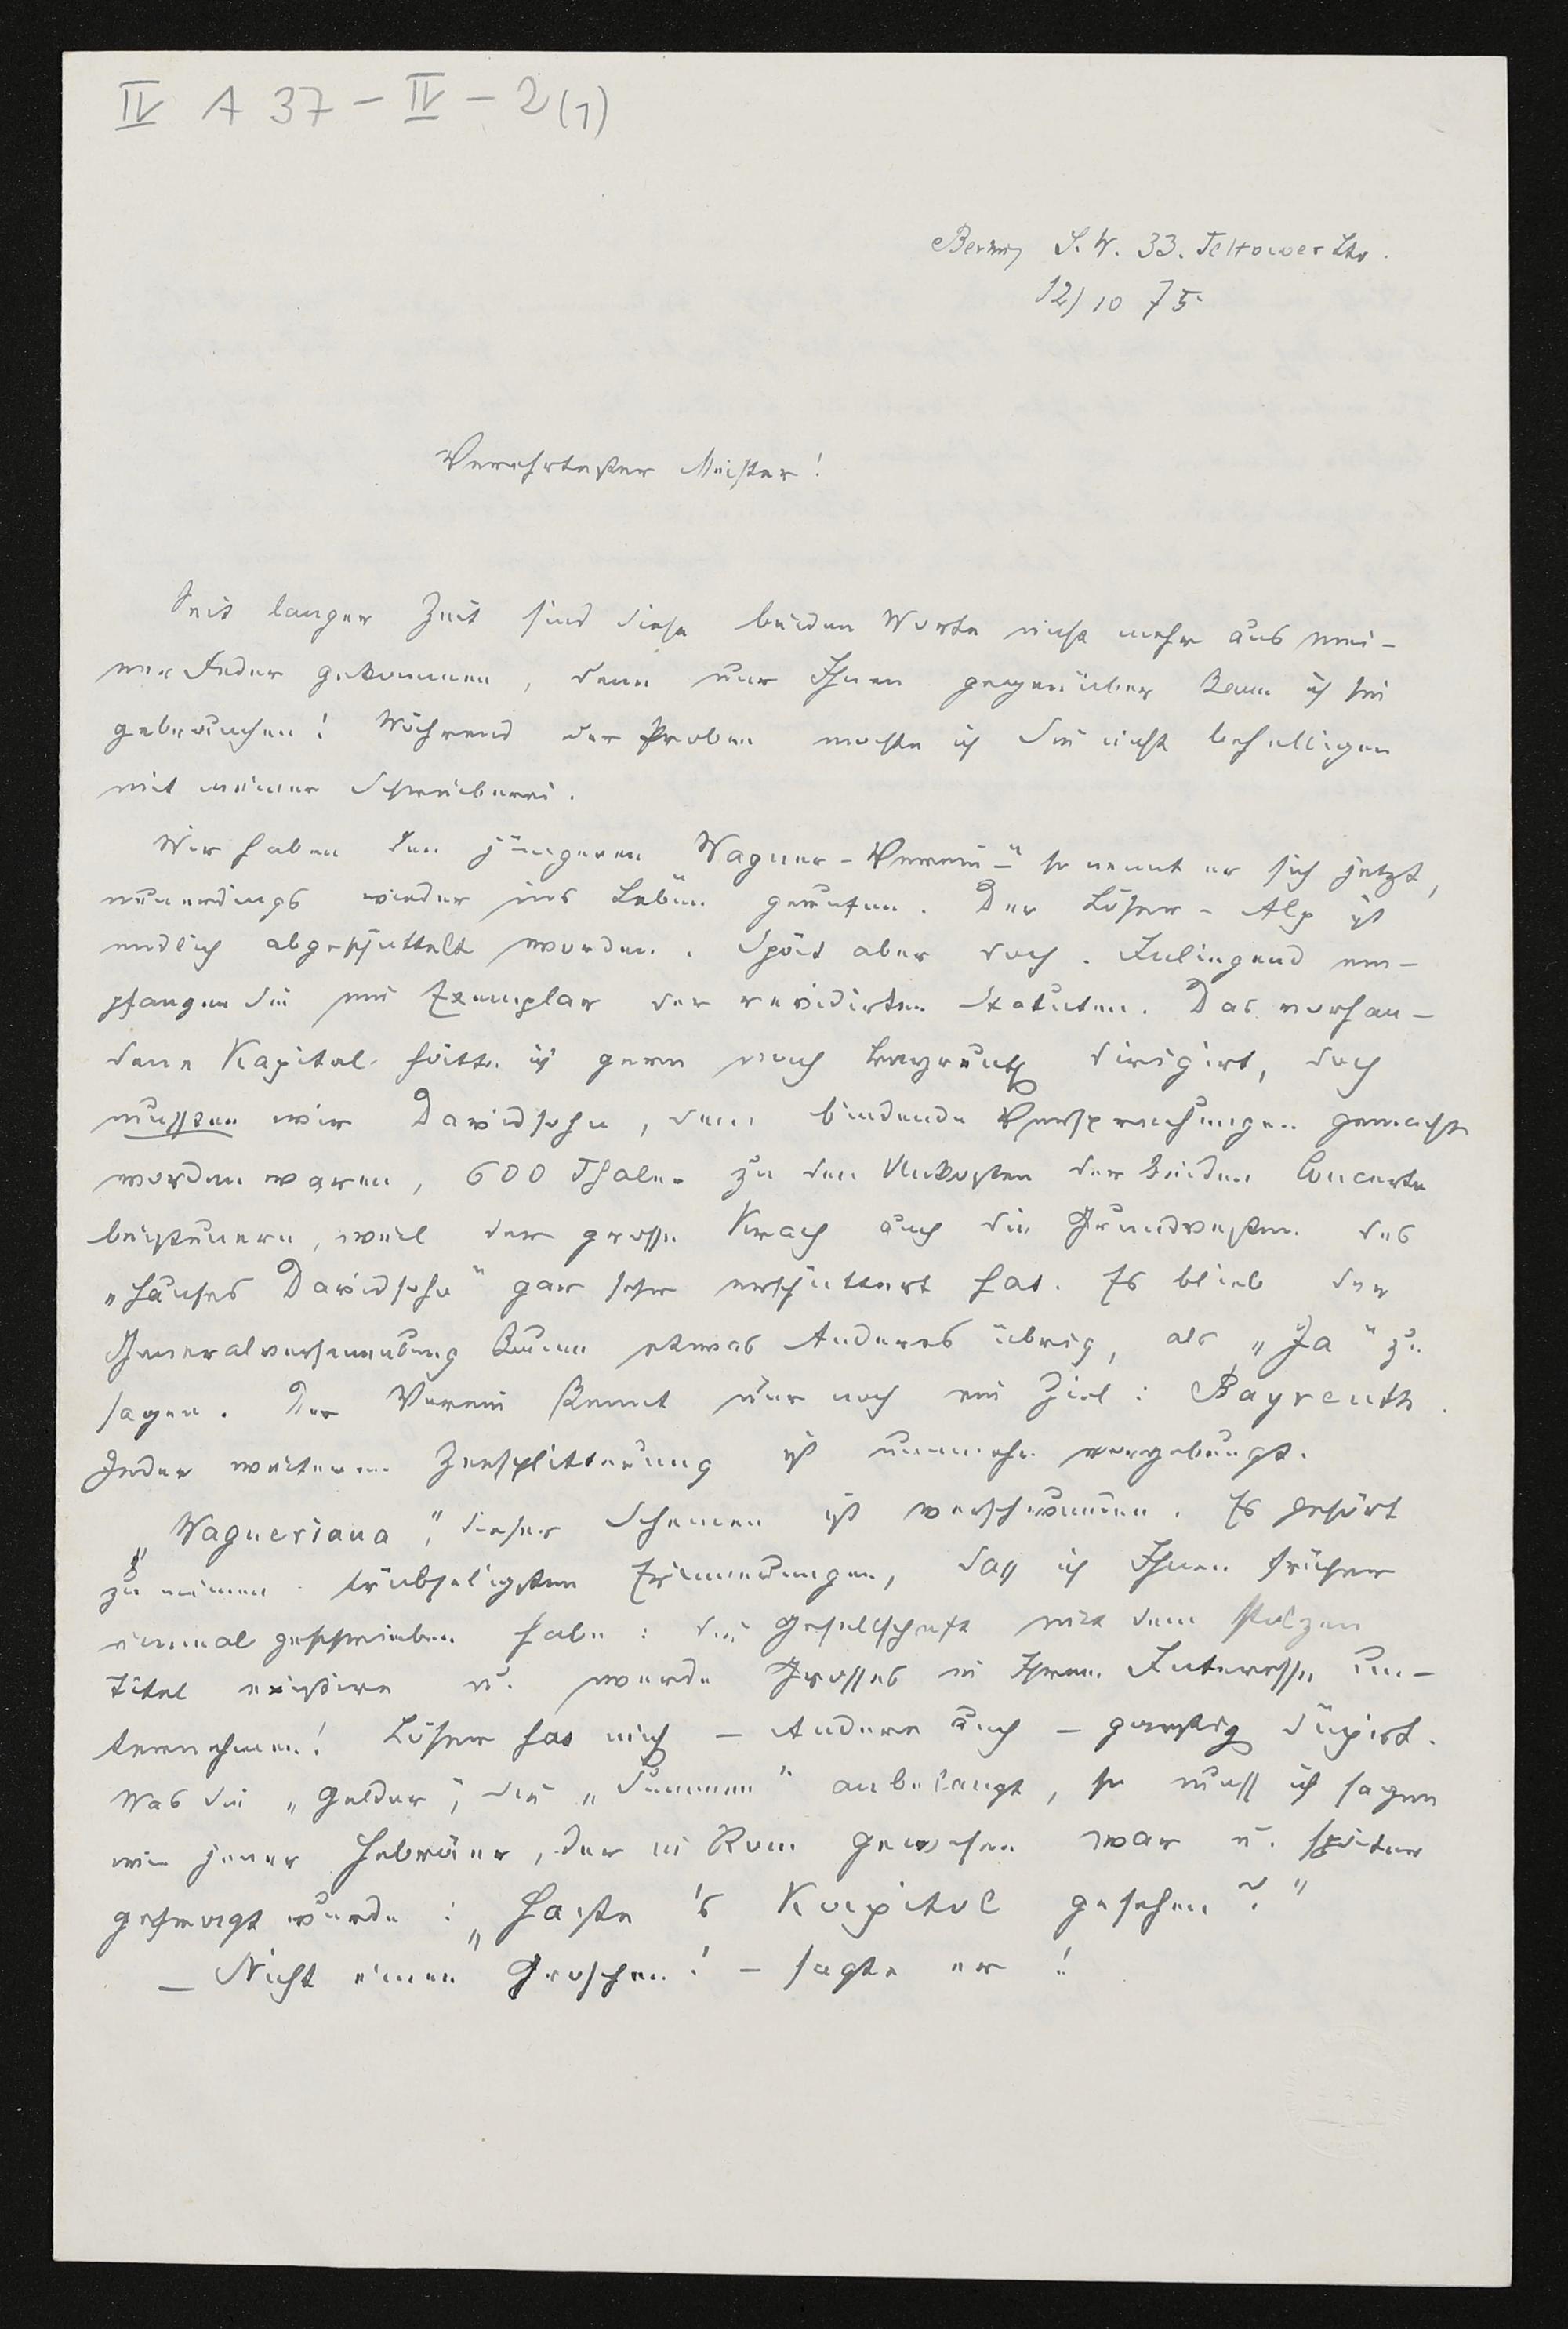 IV A 37 – IV – 2 (1)
Berlin S. W. 33. Teltower Str.
12/10 75
Verehrtester Meister!
Seit langer Zeit sind diese beiden Worte nicht mehr aus mei-
ner Feder gekommen, denn nur Ihnen gegenüber kann ich sie
gebrauchen! Während der Proben mochte ich Sie nicht behelligen
mit meiner Schreiberei.
Wir haben den jüngeren Wagner-Verein" so nennt er sich jetzt,
neuerdings wieder ins Leben gerufen. Der Löser-Alp ist
endlich abgeschüttelt worden. Spät aber doch. Inliegend em-
pfangen Sie ein Exemplar der revidirten Statuten. Das vorhan-
dene Kapital hätte ich gern nach Bayreuth dirigirt, doch
mussten wir Davidsohn, dem bindende Versprechungen gemacht
worden waren, 600 Thaler zu den Unkosten der beiden Concerte
beisteuern, weil der grosse Krach auch die Grundvesten des
„Hauses Davidsohn" gar sehr erschüttert hat. Es blieb der
Generalversammlung kaum etwas Anderes übrig, als „Ja" zu
sagen. Der Verein kennt nur noch ein Ziel: Bayreuth.
Jeder weiteren Zersplitterung ist nunmehr vorgebeugt.
„Wagneriana", dieser Schemen ist verschwunden. Es gehört
zu meinen trübseligsten Erinnerungen, dass ich Ihnen früher
einmal geschrieben habe: die Gesellschaft mit dem stolzen
Titel existire u. werde Grosses in Ihrem Interesse un-
ternehmen! Löser hat mich – Andere auch – garstig düpirt.
Was die „Gelder", die „Summen" anbelangt, so muss ich sagen
wie jener Hebräer, der in Rom gewesen war u. später
gefragt wurde: „Haste 's Kapitol gesehen?"
– Nicht einen Groschen! – sagte er!